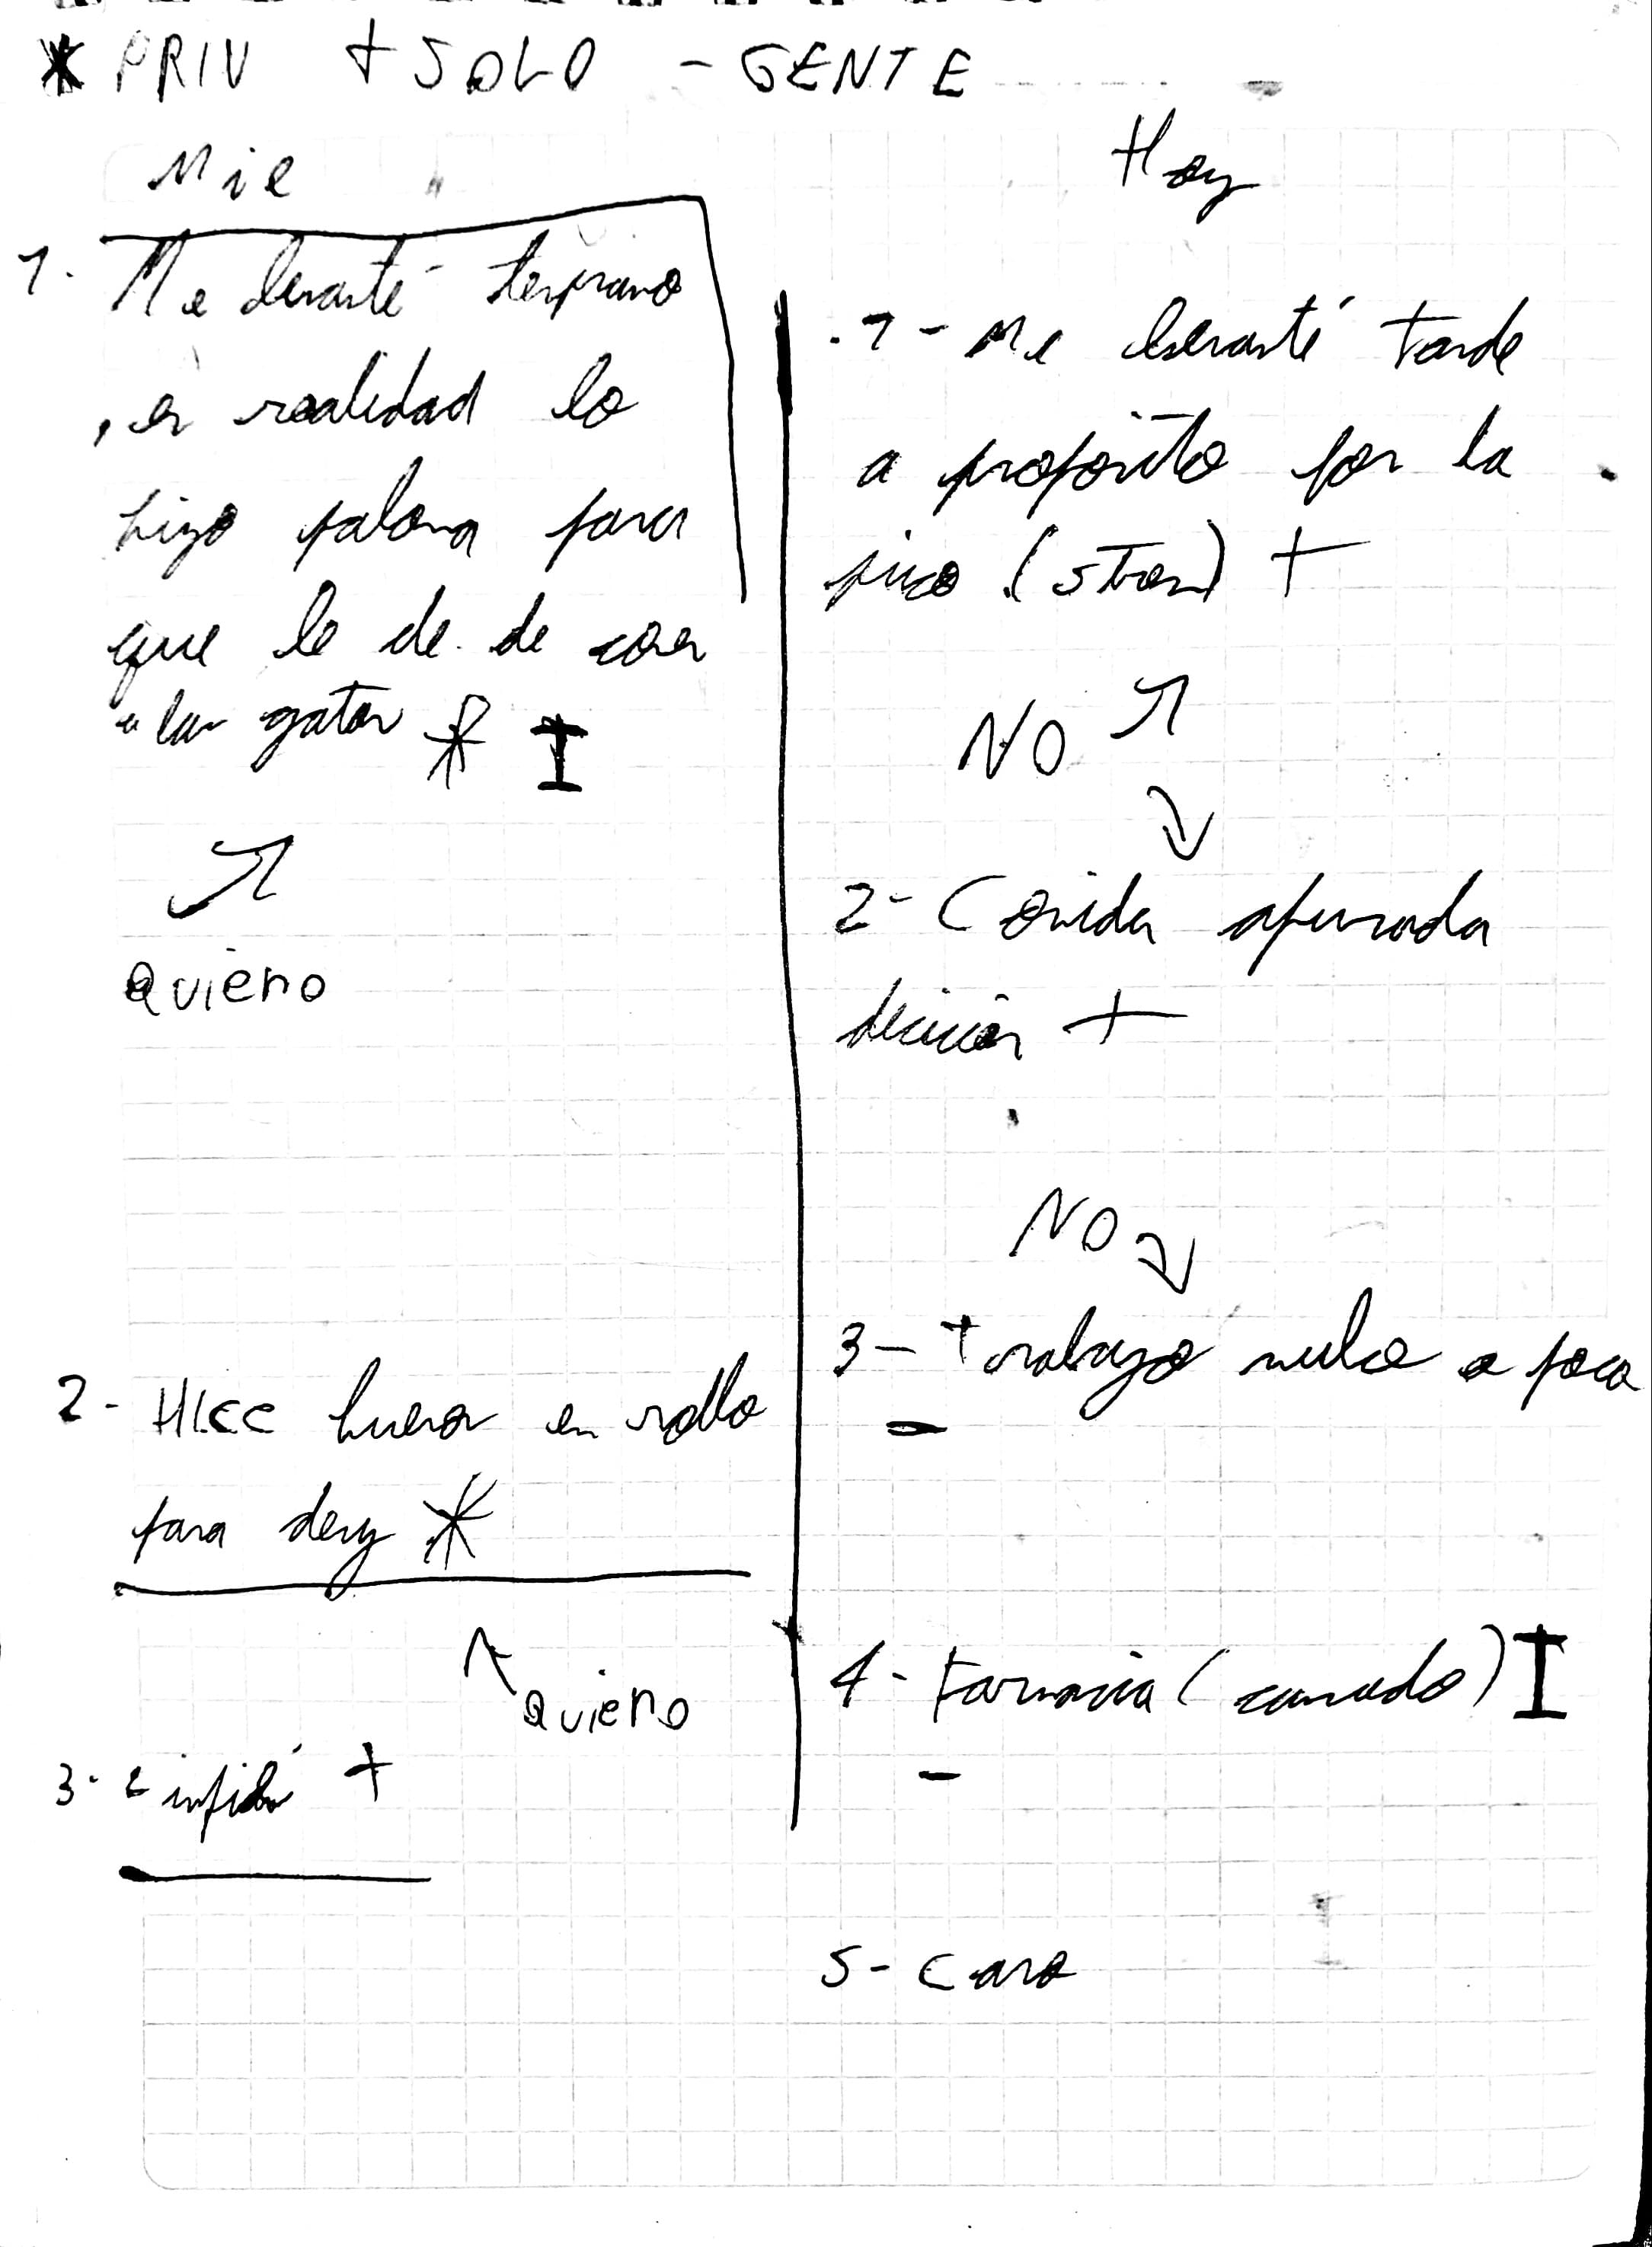 * PRIV + SOLO - GENTE
Mie
1. Me levanté temprano
, en realidad lo
hizo paloma para
que le de de comer
a los gatos * I
Quiero
2- HICE huevo en rollo
para desy *
Quiero
3- +
Hoy
1- Me levanté tarde
a propósito por la
(stron) +
NO
2- Comida apurada
decisión +
NO
3- Trabajo nulo o poco
-
4- Farmacia ( ) I
-
5- Caro